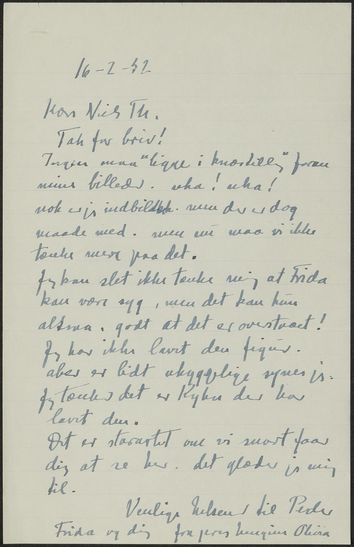 16-2-52
Kære Niels Th.
Tak for brev!
Ingen maa "ligge i knæstilling" foran
mine billeder. uha! uha!
nok er jeg indbildsk. men der er dog
maade med. men nu maa vi ikke
tænke mere paa det.
Jeg kan slet ikke tænke mig at Frida
kan være syg, men det kan hun
altsaa. godt at det er overstaaet!
Jeg har ikke lavet den figur.
aber er lidt uhyggelige synes jeg.
Jeg tænker det er Kyhn der har
lavet den.
Det er storartet om vi snart faar
dig at se her. det glæder jeg mig
til.
Venlige hilsner til Peder
Frida og dig fra jeres hengivne Olivia